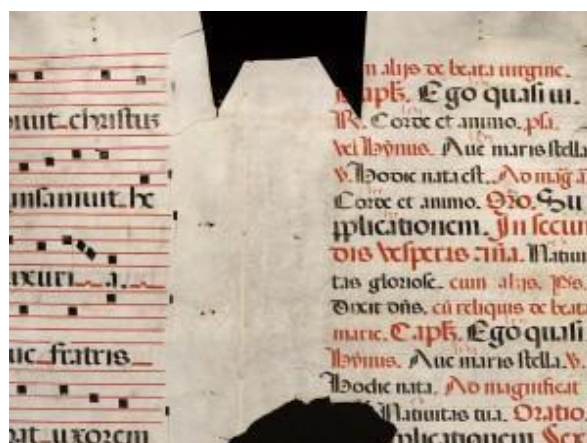 christus
nsaniuit. he
uxuri a.
uc fratris
pat uxorem
alijs de beata uirgine.
Caplm. Ego quasi ui
R. Corde et animo. ps.
vel Hymnus. Aue maris stella
V. Hodie nata est. Ao mag. a
Corde et animo. Oro. Su
pplicationem. In secun
dis vesperis. Natiui
tas gloriose. cum alijs. ps.
Dixit dns. cu reliquis de beata
marie. Caplm. Ego quasi
Hymnus. Aue maris stella. V.
Hodie nata. Ao magnificat
Natiuitas tua. Oratio.
pplicationem